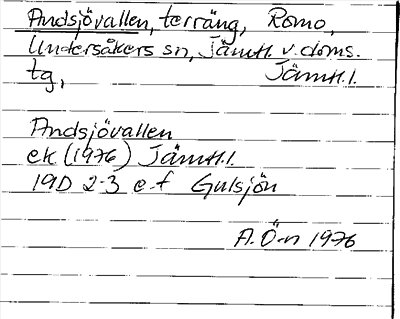 Andsjövallen, terräng, Romo,
Undersåkers sn, Jämtl. v. doms.
tg, Jämtl. l.
Andsjövallen
ek (1976) Jämtl. l.
19D 2-3 e-f Gulsjön
A. Ö-n 1976